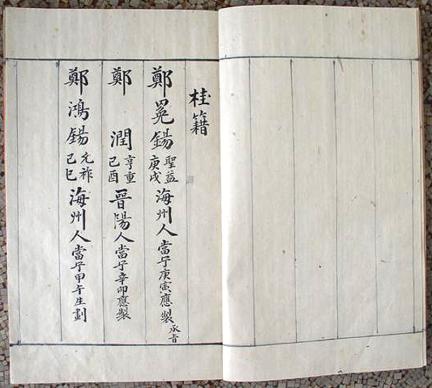 桂籍
鄭冕錫 聖益 庚戌 海州人 當宁庚寅應製 承旨
鄭 潤 亨重 己酉 晉陽人 當宁辛卯應製
鄭鴻錫 允祚 己巳 海州人 當宁甲午生劃